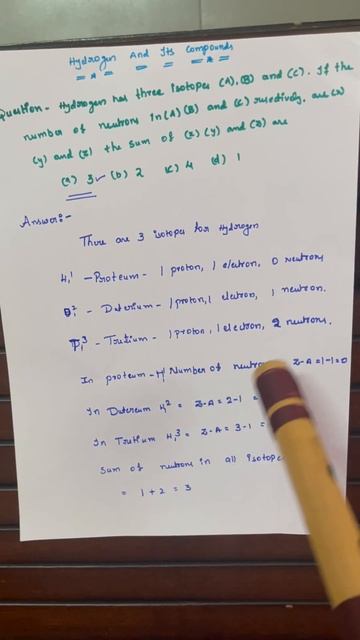 Hydrogen And Its Compounds
Question - Hydrogen has three isotopes (A), (B) and (C). If the
number of neutrons in (A) (B) and (C) respectively, are (x)
(y) and (z) the sum of (x) (y) and (z) are
(a) 3 ✓ (b) 2 (c) 4 (d) 1
Answer:-
There are 3 isotopes for Hydrogen
H₁¹ - Proteum - 1 proton, 1 electron, 0 neutrons
D₁² - Deterium - 1 proton, 1 electron, 1 neutron.
T₁³ - Tritium - 1 proton, 1 electron, 2 neutrons.
In proteum - H¹ Number of neutro Z-A = 1-1 = 0
In Dutereum H₁² = Z-A = 2-1 =
In Tritium H₁³ = Z-A = 3-1 =
Sum of neutrons in all isotope
= 1 + 2 = 3